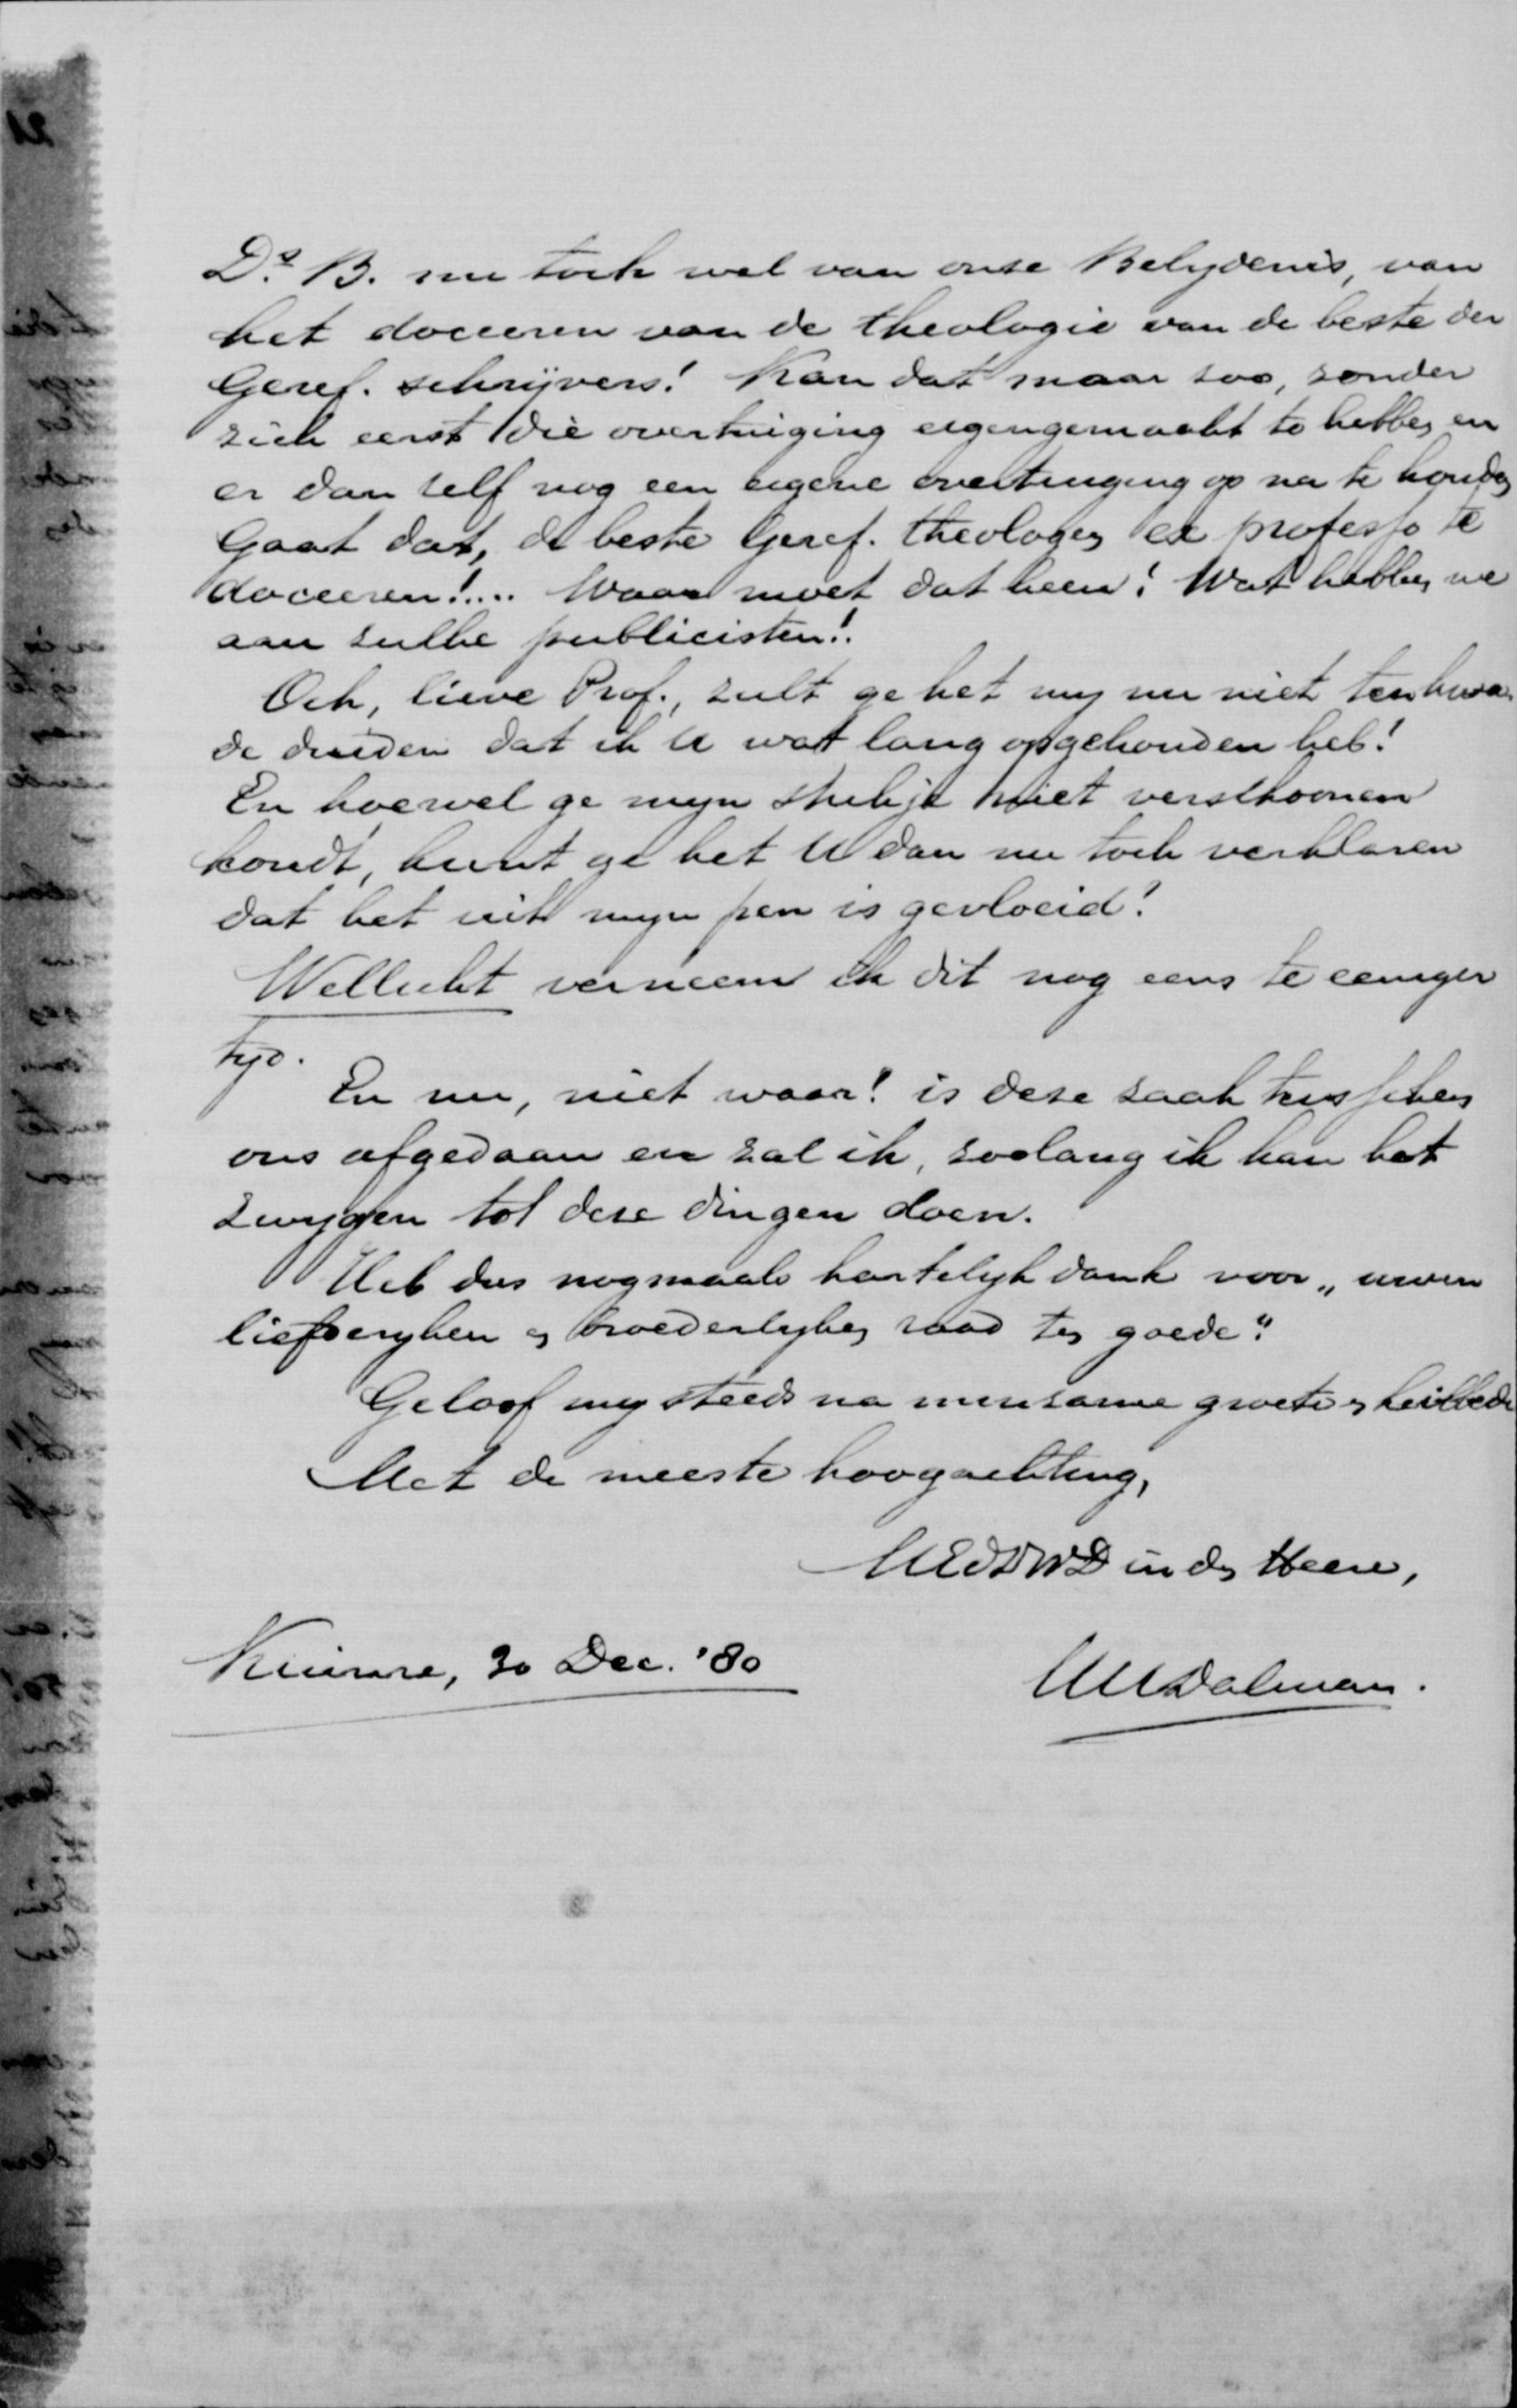 Ds B. nu toch wel van onze Belydenis, van
het doceeren van de theologie van de beste der
Geref. schrijvers! Kan dat maar zoo, zonder
zich eerst die overtuiging eigengemaakt te hebben en
er dan zelf nog een eigene overtuiging op na te houden
Gaat dat, de beste Geref. theologen ex professo te
doceeren!.... Waar moet dat heen! Wat hebben we
aan zulke publicisten!.
Och, lieve Prof., zult ge het my nu niet ten kwa-
de duiden dat ik U wat lang opgehouden heb!
En hoewel ge myn stukje niet verschoonen
kondt, kunt ge het U dan nu toch verklaren
dat het uit myn pen is gevloeid!
Wellicht verneem ik dit nog eens te eeniger
tyd.
En nu, niet waar! is deze zaak tusschen
ons afgedaan en zal ik, zoolang ik kan het
zwygen tot deze dingen doen.
Heb dus nogmaals hartelyk dank voor „uwen
liefderyken en broederlyken raad ten goede".
Geloof my steeds na minzame groete en heilbede
Met de meeste hoogachting,
UEdDWD in den Heere,
Kuinre, 30 Dec. '80
Dalman.